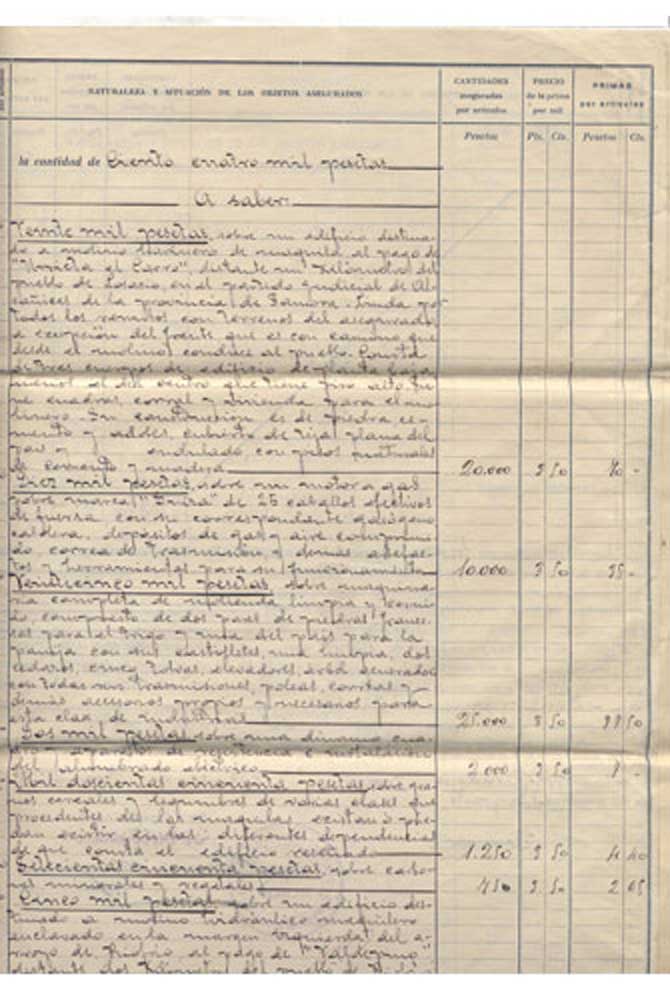 NATURALEZA Y SITUACIÓN DE LOS OBJETOS ASEGURADOS
CANTIDADES
aseguradas
por artículos
PRECIO
de la prima
por mil
PRIMAS
por artículos
Pesetas Pts. Cts. Pesetas Cts.
la cantidad de Ciento cuatro mil pesetas
A saber:
Veinte mil pesetas, sobre un edificio destina-
do a molino harinero de maquila, al pago de
"Urrieta el Carro", distante un kilómetro del
pueblo de Losacio, en el partido judicial de Al-
cañices de la provincia de Zamora. Linda por
todos los vientos con terrenos del asegurado
a excepción del frente que es con camino que
desde el molino conduce al pueblo. Consta
de tres cuerpos de edificio de planta baja
menos el del centro que tiene piso alto. tie-
ne cuadras, corral y vivienda para el mo-
linero. Su construcción es de piedra ce-
mento y adobes, cubierto de teja plana del
pais y ondulado, con pisos
de cemento y madera 20.000 3 50 70 -
Diez mil pesetas, sobre un motor a gas
pobre marca de 25 caballos efectivos
de fuerza con su correspondiente gasógeno
caldera, depósitos de gas y aire comprimi-
do, correa de trasmisión y demás artefac-
tos y herramientas para su funcionamiento 10.000 3 50 35 -
Veinticinco mil pesetas, sobre maquina-
ria completa de molienda, limpia y cerni-
do, compuesto de dos pares de piedras france-
sas para el trigo y una del pais para la
con sus una limpia, dos
cedazos, cinco tolvas, elevadores, árbol
con todas sus trasmisiones, poleas, correas y
demás accesorios propios y necesarios para
esta clase de industrias 25.000 3 50 50
Dos mil pesetas, sobre una dinamo cua-
dro y aparatos de resistencia e instalación
del alumbrado eléctrico 2.000 3 50 7 -
Mil doscientas cincuenta pesetas, sobre gra-
nos cereales y legumbres de varias clases que
procedentes de las maquilas, existan o pue-
dan existir en las diferentes dependencias
de que consta el edificio reseñado 1.250 3 50 4 40
Setecientas cincuenta pesetas, sobre carbo-
nes minerales y vegetales 750 3 50 2 65
Cinco mil pesetas, sobre un edificio des-
tinado a molino hidráulico maquilero
enclavado en la margen izquierda del a-
rroyo de al pago de "Valdejunco"
distante dos kilómetros del pueblo de